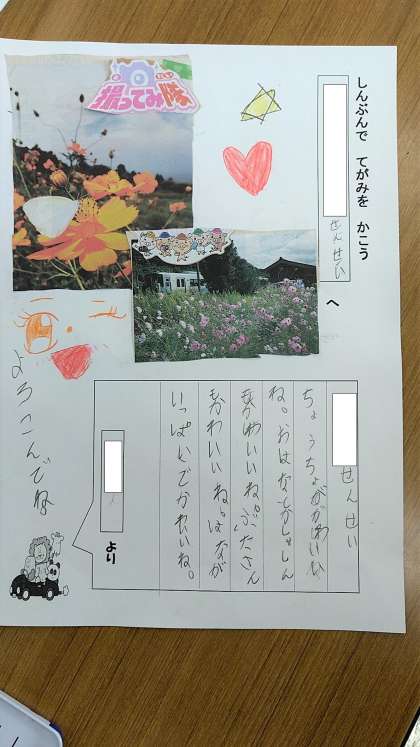 しんぶんで てがみを かこう
せんせい
へ
せんせい
ちょうちょがかわいい
ね。おはなとかしゃしん
もかわいいね。ぶたさん
もかわいいね。はなが
いっぱいでかわいいね。
より
撮ってみ隊
よろこんでね